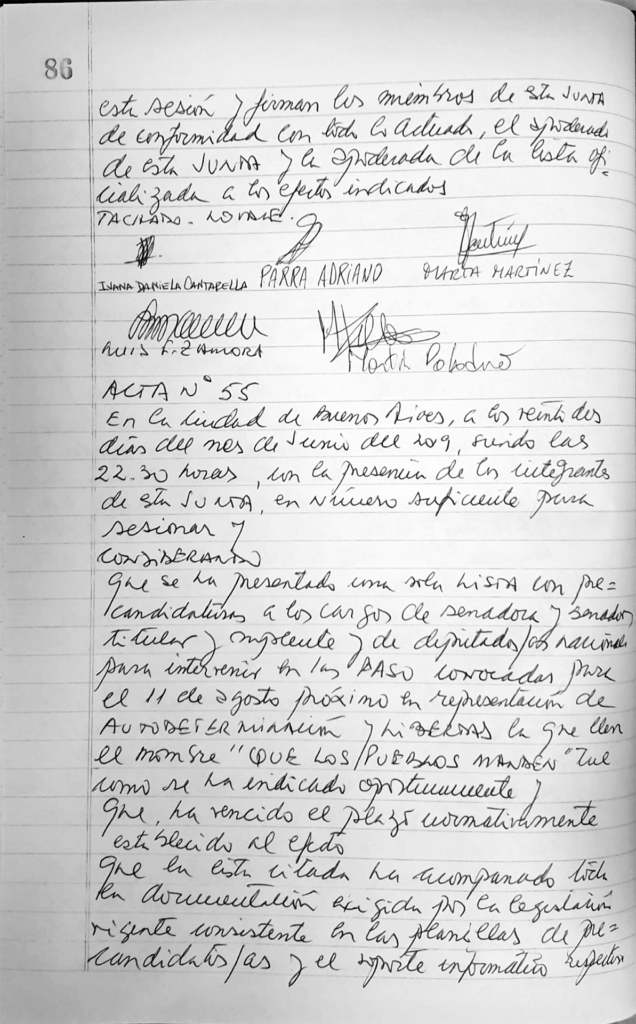 86
esta sesión y firman los miembros de esta JUNTA
de conformidad con todo lo actuado, el apoderado
de esta JUNTA y la apoderada de la lista ofi-
cializada a los efectos indicados
TACHADO.
IVANA DANIELA CANTARELLA PARRA ADRIANO MARTA MARTÍNEZ
LUIS F. ZAMORA Martín
ACTA Nº 55
En la Ciudad de Buenos Aires, a los veintidos
días del mes de Junio del 2019, siendo las
22.30 horas, con la presencia de los integrantes
de esta JUNTA, en número suficiente para
sesionar y
CONSIDERANDO
Que se ha presentado una sola LISTA con pre=
candidaturas a los cargos de senadora y senador,
titular y suplente y de diputados/as nacionales
para intervenir en las PASO convocadas para
el 11 de agosto próximo en representación de
AUTODETERMINACIÓN y LIBERTAD la que lleva
el nombre "QUE LOS/PUEBLOS MANDEN" Tal
como se ha indicado oportunamente y
Que, ha vencido el plazo normativamente
establecido al efecto
Que la lista citada ha acompanado toda
la documentación exigida por la legislación
vigente consistente en las planillas de pre=
candidatos/as y el soporte informático respectivo